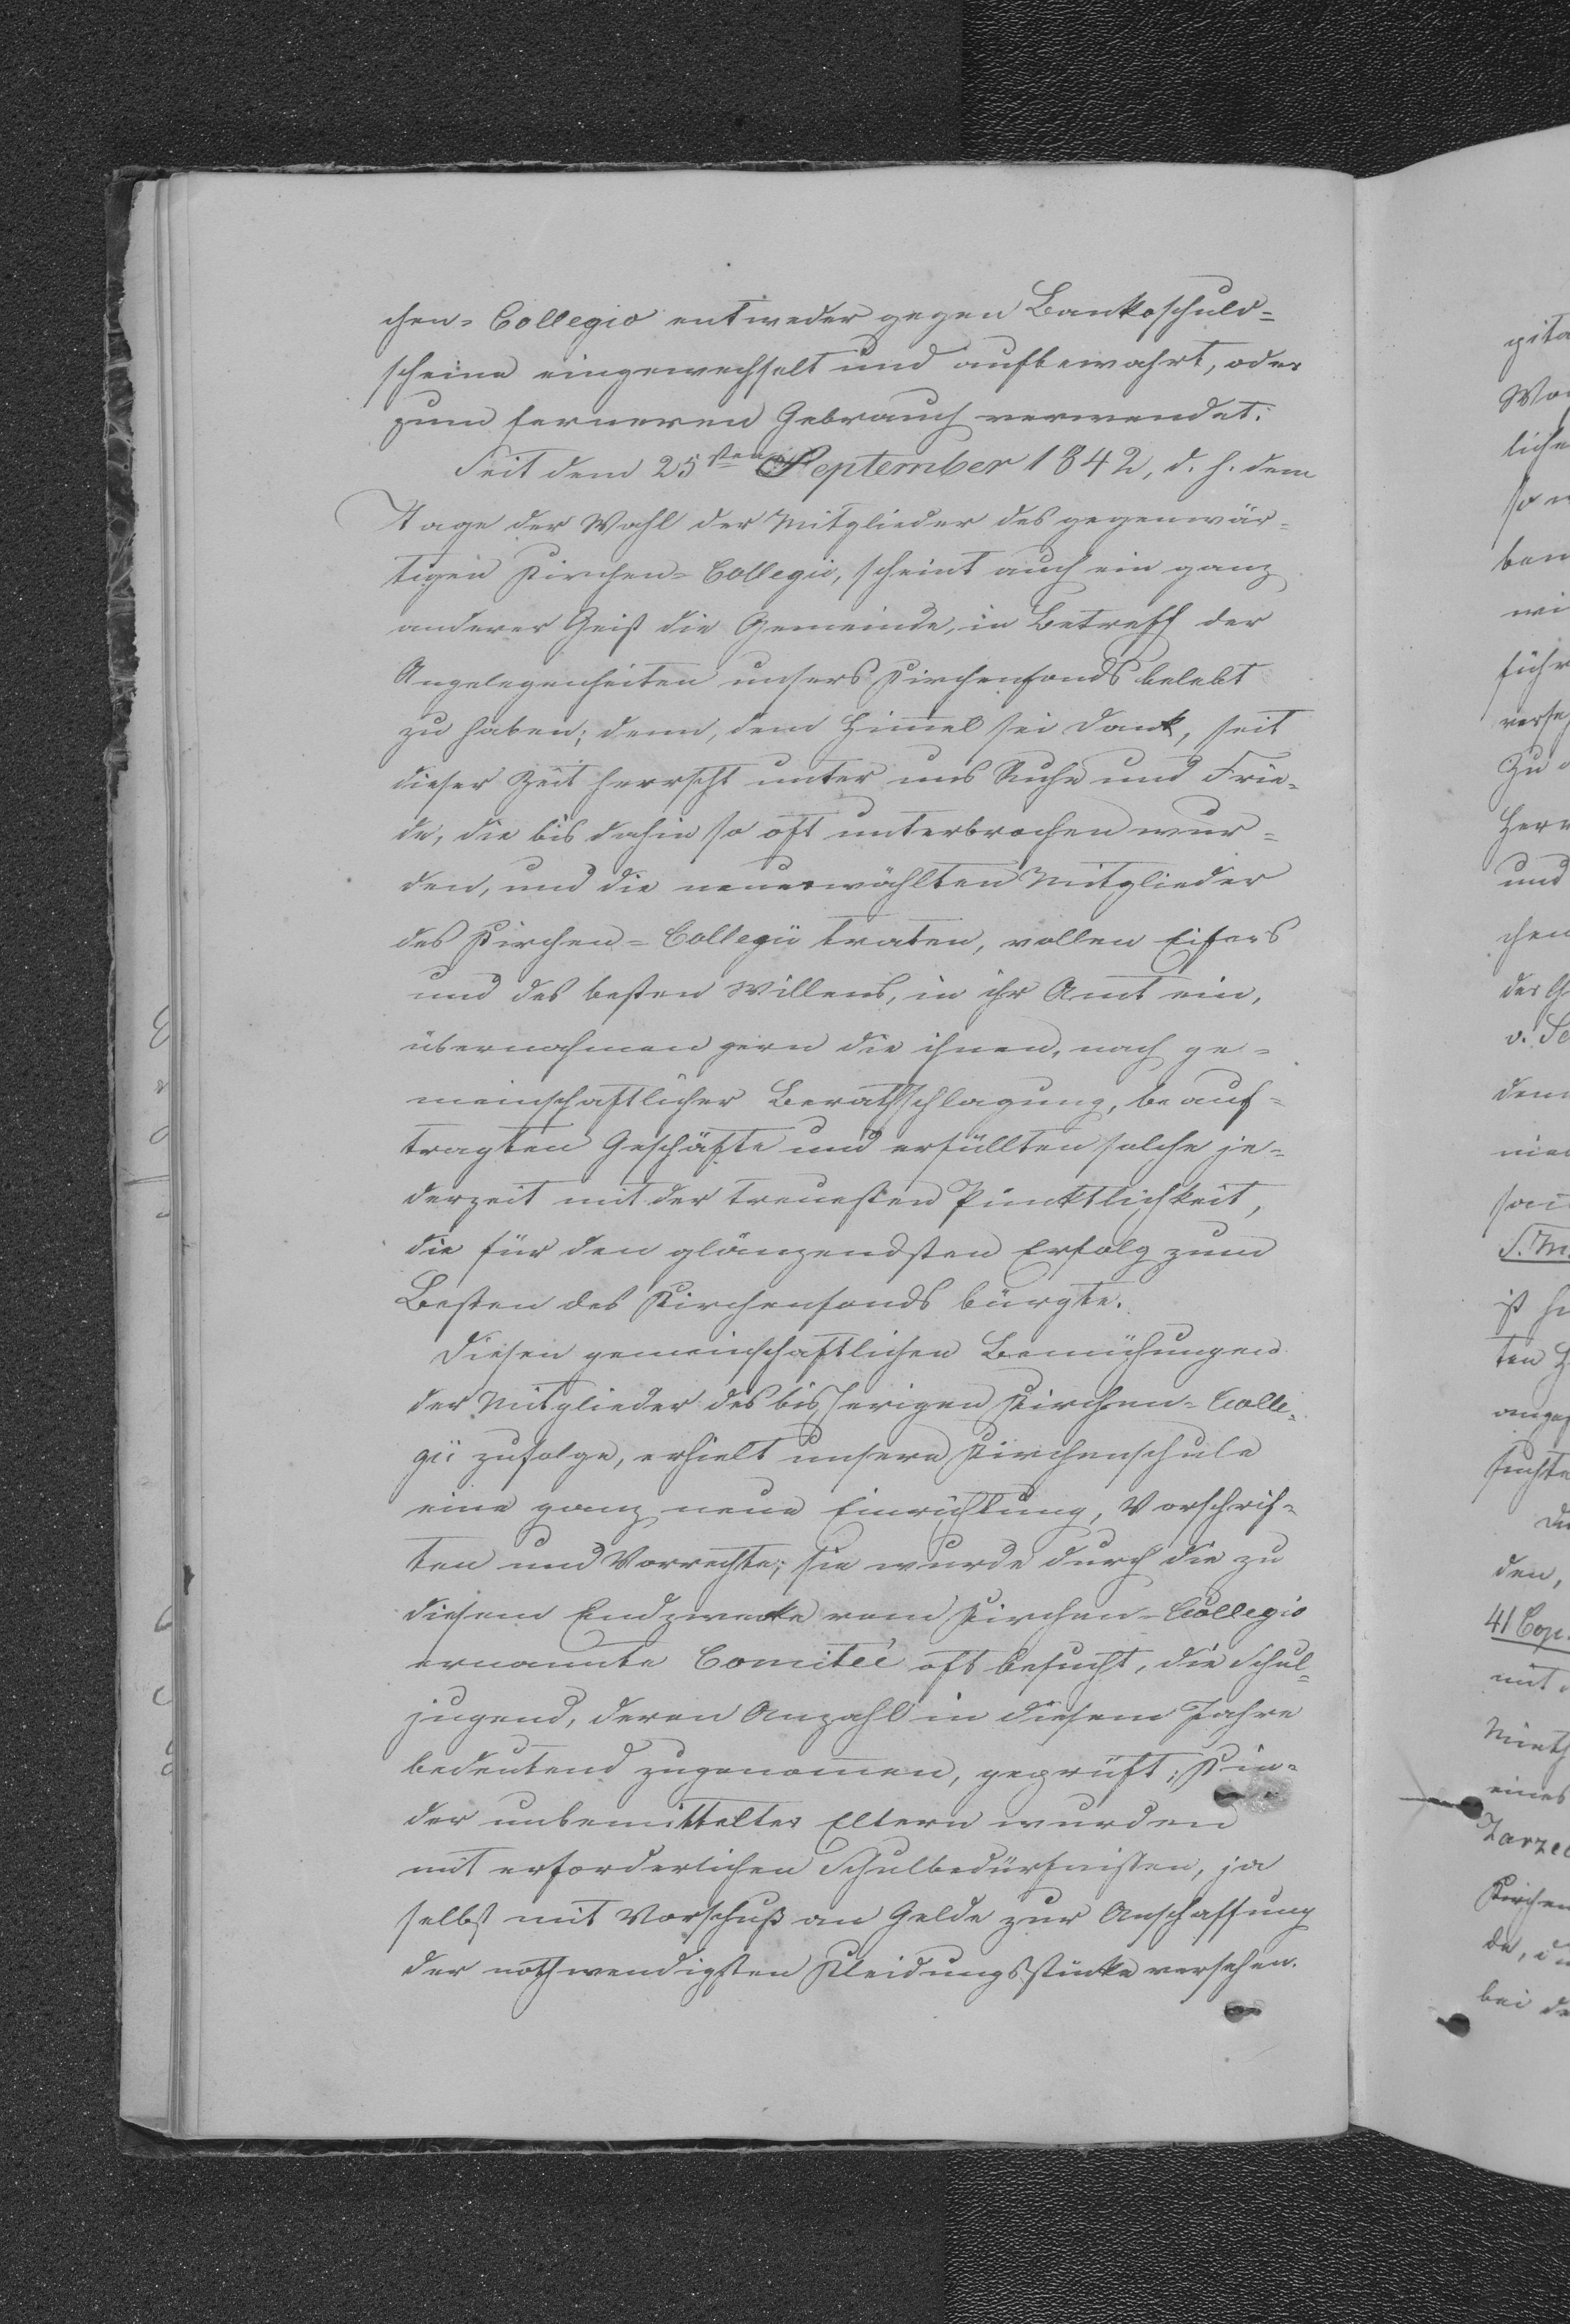 chen-Collegio entweder gegen Bankoschuld-
scheine eingewechselt und aufbewahrt, oder
zum ferneren Gebrauch verwendet.
Seit dem 25sten September 1842, d. h. dem
Tage der Wahl der Mitglieder des gegenwär-
tigen Kirchen-Collegii, scheint auch ein ganz
anderer Geist die Gemeinde, in Betreff der
Angelegenheiten unsers Kirchenfonds belebt
zu haben; denn, dem Himmel sei Dank, seit
dieser Zeit herrscht unter uns Ruhe und Frie-
de, die bis dahin so oft unterbrochen wur-
den, und die neuerwählten Mitglieder
des Kirchen-Collegii traten, vollen Eifers
und des besten Willens, in ihr Amt ein,
übernahmen gern die ihnen, nach ge-
meinschaftlicher Berathschlagung, beauf-
tragten Geschäfte und erfüllten solche je-
derzeit mit der treuesten Pünktlichkeit,
die für den glänzendsten Erfolg zum
Besten des Kirchenfonds bürgte.
Diesen gemeinschaftlichen Bemühungen
der Mitglieder des bisherigen Kirchen-Colle-
gii zufolge, erhielt unsere Kirchenschule
eine ganz neue Einrichtung, Vorschrif-
ten und Vorrechte; sie wurde durch die zu
diesem Endzwecke vom Kirchen-Collegio
ernannte Comiteé oft besucht, die Schul-
jugend, deren Anzahl in diesem Jahre
bedeutend zugenommen, geprüft; Kin-
der unbemittelter Eltern wurden
mit erforderlichen Schulbedürfnissen, ja
selbst mit Vorschuß an Gelde zur Anschaffung
der nothwendigsten Kleidungsstücke versehen.